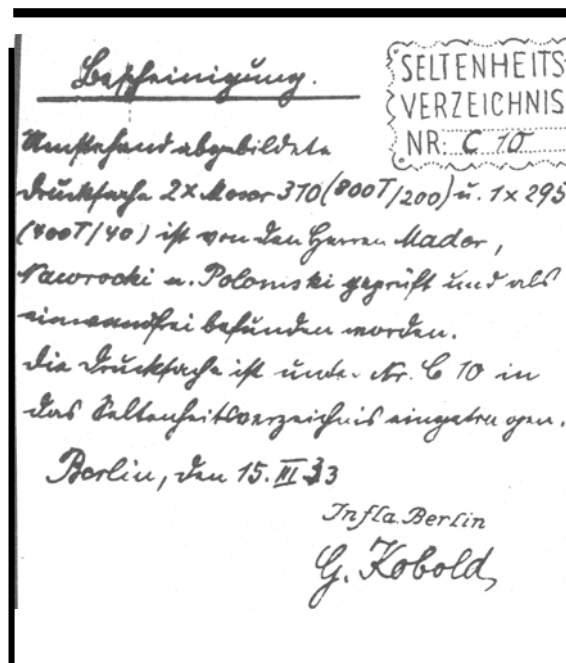 Bescheinigung.
SELTENHEITS
VERZEICHNIS
NR: C 10
Umstehend abgebildete
Drucksache 2x Moser 310 (800T/200) u. 1x 295
(400T/40) ist von den Herren Mador,
Nawrocki u. Polomski geprüft und als
einwandfrei befunden worden.
Die Drucksache ist unter Nr. C 10 in
das Seltenheitsverzeichnis eingetragen.
Berlin, den 15. III 33
Infla. Berlin
G. Kobold